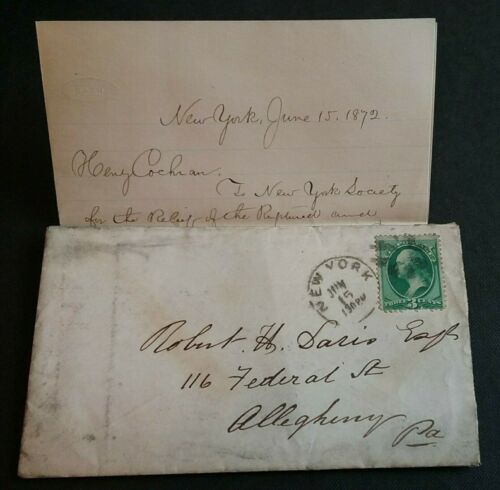 New York, June 15. 1872.
Henry Cochran.
To New York Society
for the Relief of the Ruptured and
NEW YORK
JUN
15
130PM
THREE 3 CENTS
Robert H. Davis Esqr
116 Federal St
Allegheny
Pa